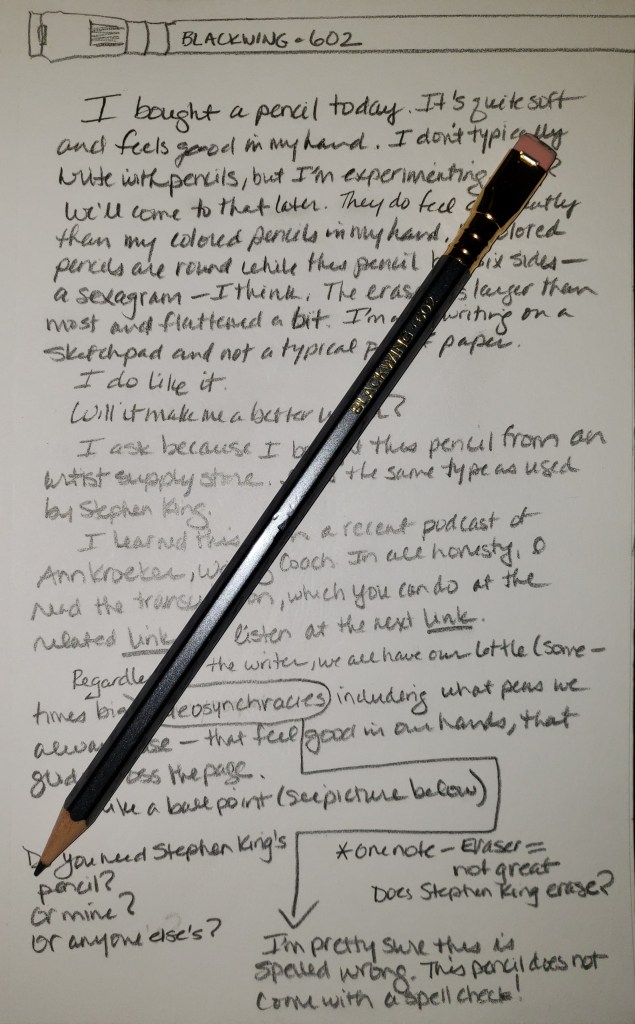 BLACKWING • 602
I bought a pencil today. It's quite soft
and feels good in my hand. I don't typically
write with pencils, but I'm experimenting
We'll come to that later. They do feel
than my colored pencils in my hand.
pencils are round while this pencil six sides—
a sexagram — I think. The larger than
most and flattened a bit. I'm writing on a
sketchpad and not a typical paper.
I do like it.
Will it make me a better
I ask because I this pencil from an
artist supply store. the same type as used
by Stephen King.
I learned this a recent podcast of
Ann Kroeker, Coach. In all honesty, I
read the which you can do at the
related link listen at the next link.
Regardless the writer, we all have our little (some-
times including what pens we
that feel good in our hands, that
the page.
a ball point (see picture below)
you need Stephen King's
pencil?
Or mine?
Or anyone else's?
*One note - Eraser =
not great
Does Stephen King erase?
I'm pretty sure this is
spelled wrong. This pencil does not
come with a spell check!
BLACKWING 602